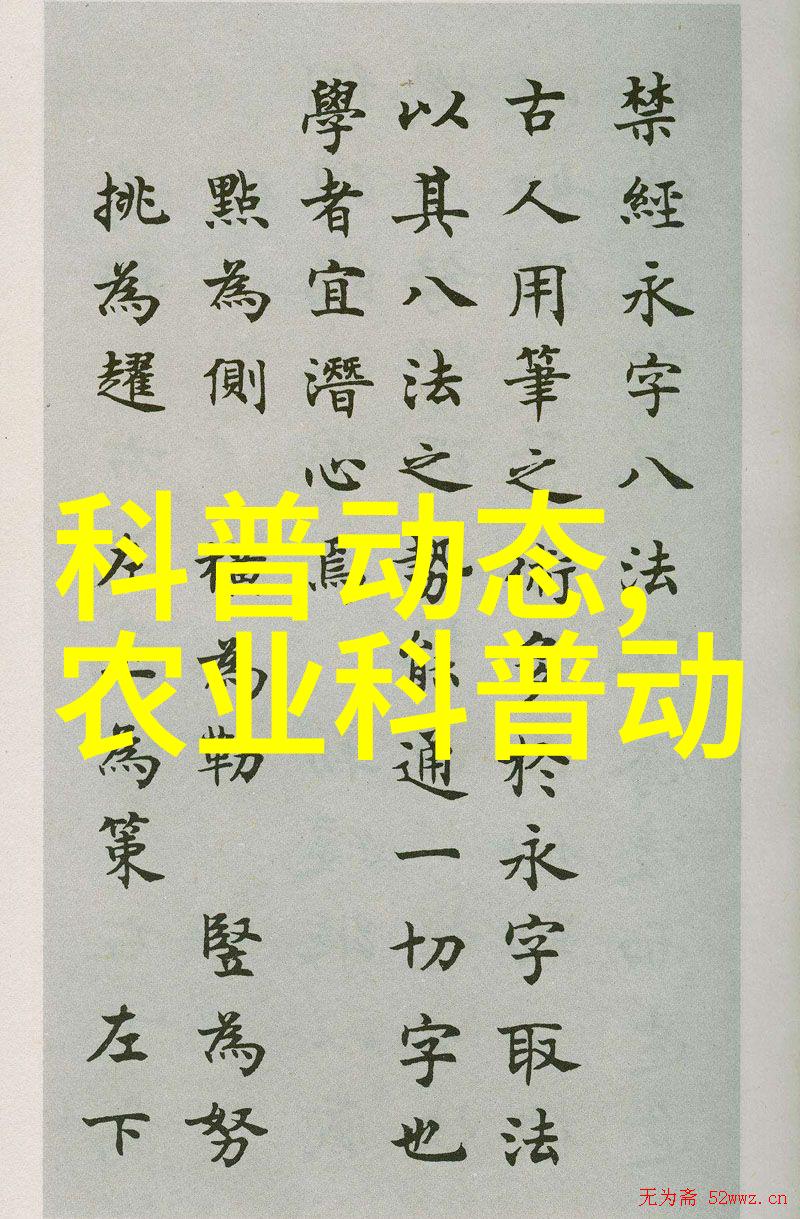 禁經永字八法
古人用筆之術多於永字取法
以其八法之勢能通一切字也
學者宜潛心焉
點為側 橫為勒 豎為努
挑為趯 左上為策 左下
科普动态,
农业科普动
无为斋 52wwz.cn